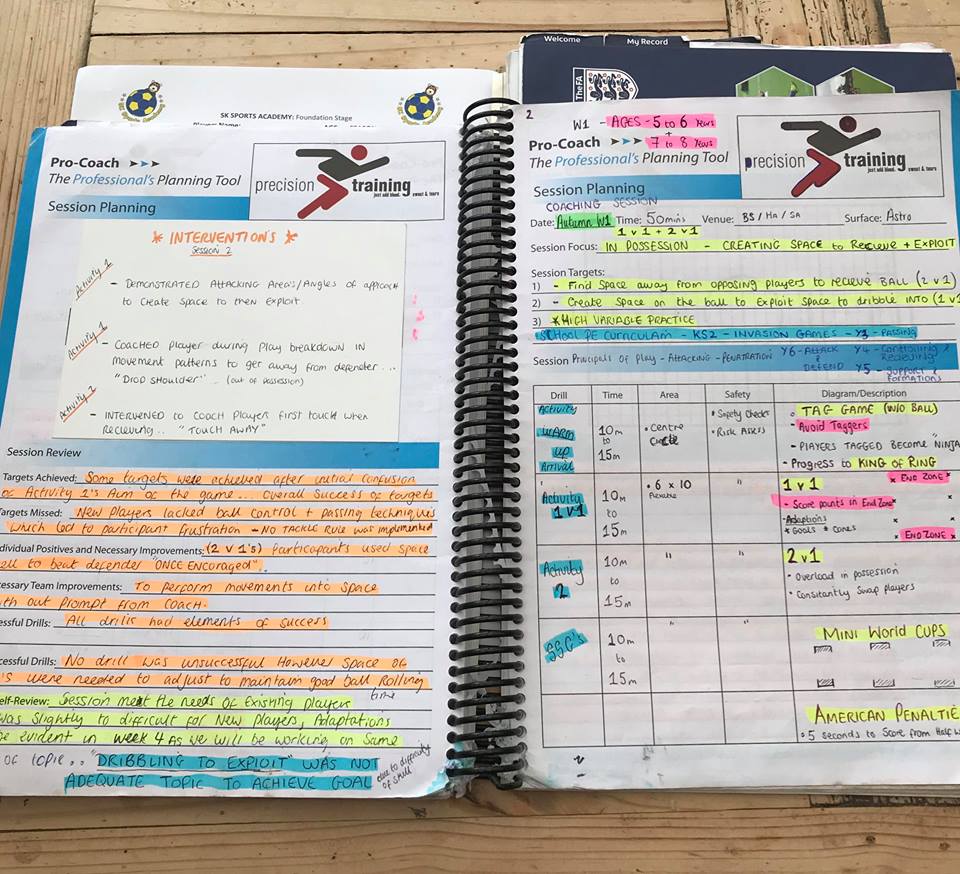 Welcome
My Record
The FA
SK SPORTS ACADEMY: Foundation Stage
Pro-Coach
The Professional's Planning Tool
precision
training
just add blood, sweat & tears
Session Planning
* INTERVENTION'S *
SESSION 2
Activity 1
- DEMONSTRATED ATTACKING Areas/Angles of approach
to Create Space to then exploit
Activity 1
- COACHED PLAYER during Play breakdown IN
movement patterns to get away from defender...
"DROP SHOULDER".. (out of possession)
Activity 2
- INTERVENED to COACH PLAYERS FIRST touch when
RECIEVING.. "TOUCH AWAY"
Session Review
Targets Achieved: Some targets were achieved after initial confusion
of Activity 1's Aim of the game... Overall Success of targets
Targets Missed: New Players lacked ball control + passing techniques
which led to participant frustration - NO TACKLE RULE was implemented
ndividual Positives and Necessary Improvements: (2 v 1's) Participants used space
ell to beat defender "ONCE ENCORAGED".
essary Team Improvements: To perform movements into space
th out prompt from coach.
essful Drills: All drills had elements of success
cessful Drills: No drill was unsuccessful However Space of
's were needed to adjust to maintain good ball Rolling
time
elf-Review: Session meet the needs of existing players
was slightly to difficult for New players, Adaptations
be evident in week 4 As we will be working on same
of topic.. "DRIBBLING TO EXPLOIT" WAS NOT
ADEQUATE TOPIC TO ACHIEVE GOAL
due to difficulty
of skill
2
W1 - AGES - 5 to 6 Years
+
7 to 8 Years
Pro-Coach
The Professional's Planning Tool
precision
training
just add blood, sweat & tears
Session Planning
COACHING SESSION
Date: Autumn W1 Time: 50mins Venue: BS / HA / SA Surface: Astro
1 v 1 + 2 v 1
Session Focus: IN POSSESSION - CREATING SPACE to Recieve + EXPLOIT
Session Targets:
1) - Find Space away from opposing players to recieve BALL (2 v 1)
2) - Create space on the ball to Exploit space to dribble INTO (1 v
3) * HIGH VARIABLE PRACTICE
* School PE CURRICULAM - KS2 - INVASION GAMES - Y3 - PASSING
Session Principals of Play - ATTACKING - PENATRATION Y6 - ATTACK Y4 - Controlling /
& Recieving
DEFEND Y5 - SUPPORT &
FORMATIONS
Drill Time Area Safety Diagram/Description
Activity
WARM
UP
Arrival
10m
to
15m
• Centre
Circle
• Safety Checks
• Risk Assess
TAG GAME (W/O BALL)
• Avoid Taggers
- PLAYERS TAGGED BECOME "NINJA
- Progress to KING OF RING
Activity 1
1v1
10m
to
15m
• 6 x 10
"
1 v 1
* END ZONE *
- Score points in End Zone
- Adaptions
* Goals * Cones
* END ZONE *
Activity
2
10m
to
15m
"
"
2 v 1
• Overload in possession
• Constantly Swap players
SSG's
10m
to
15m
"
"
MINI World CUPS
AMERICAN PENALTIE
• 5 seconds to Score from Half w